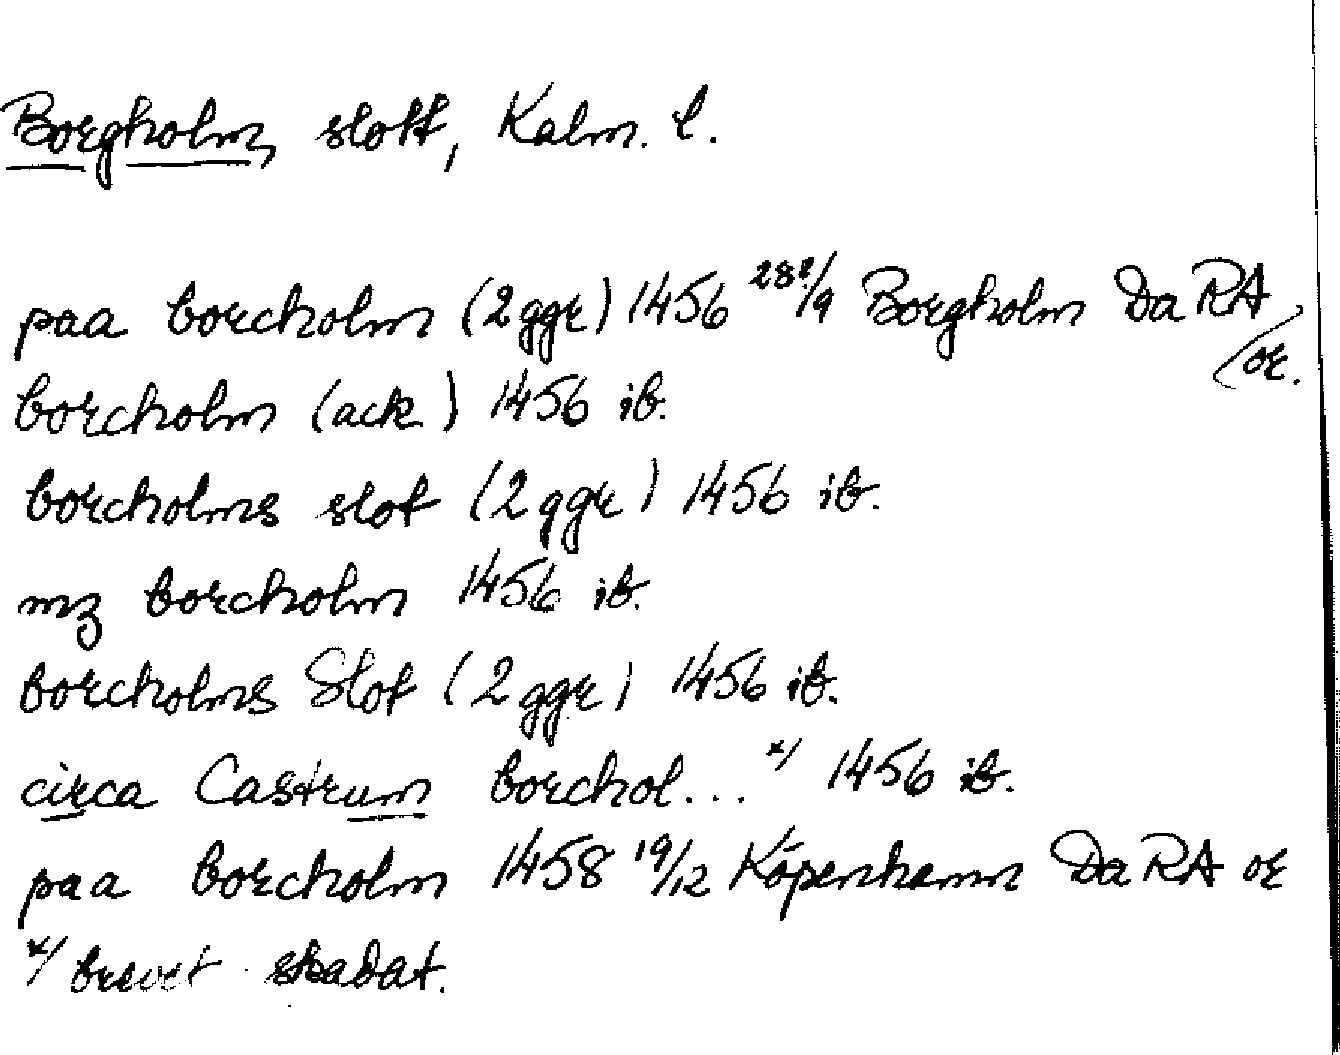 Borgholm, slott, Kalm. l.
paa borcholm (2 ggr) 1456 28?/9 Borgholm Da RA
or.
borcholm (ack.) 1456 ib.
borcholms slot (2 ggr) 1456 ib.
mz borcholm 1456 ib.
borcholms Slot (2 ggr) 1456 ib.
circa Castrum borchol... x/ 1456 ib.
paa borcholm 1458 19/12 Köpenhamn Da RA or
x/ brevet skadat.